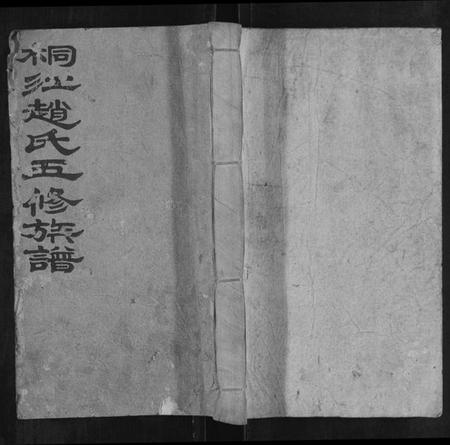 桐江趙氏五修族譜